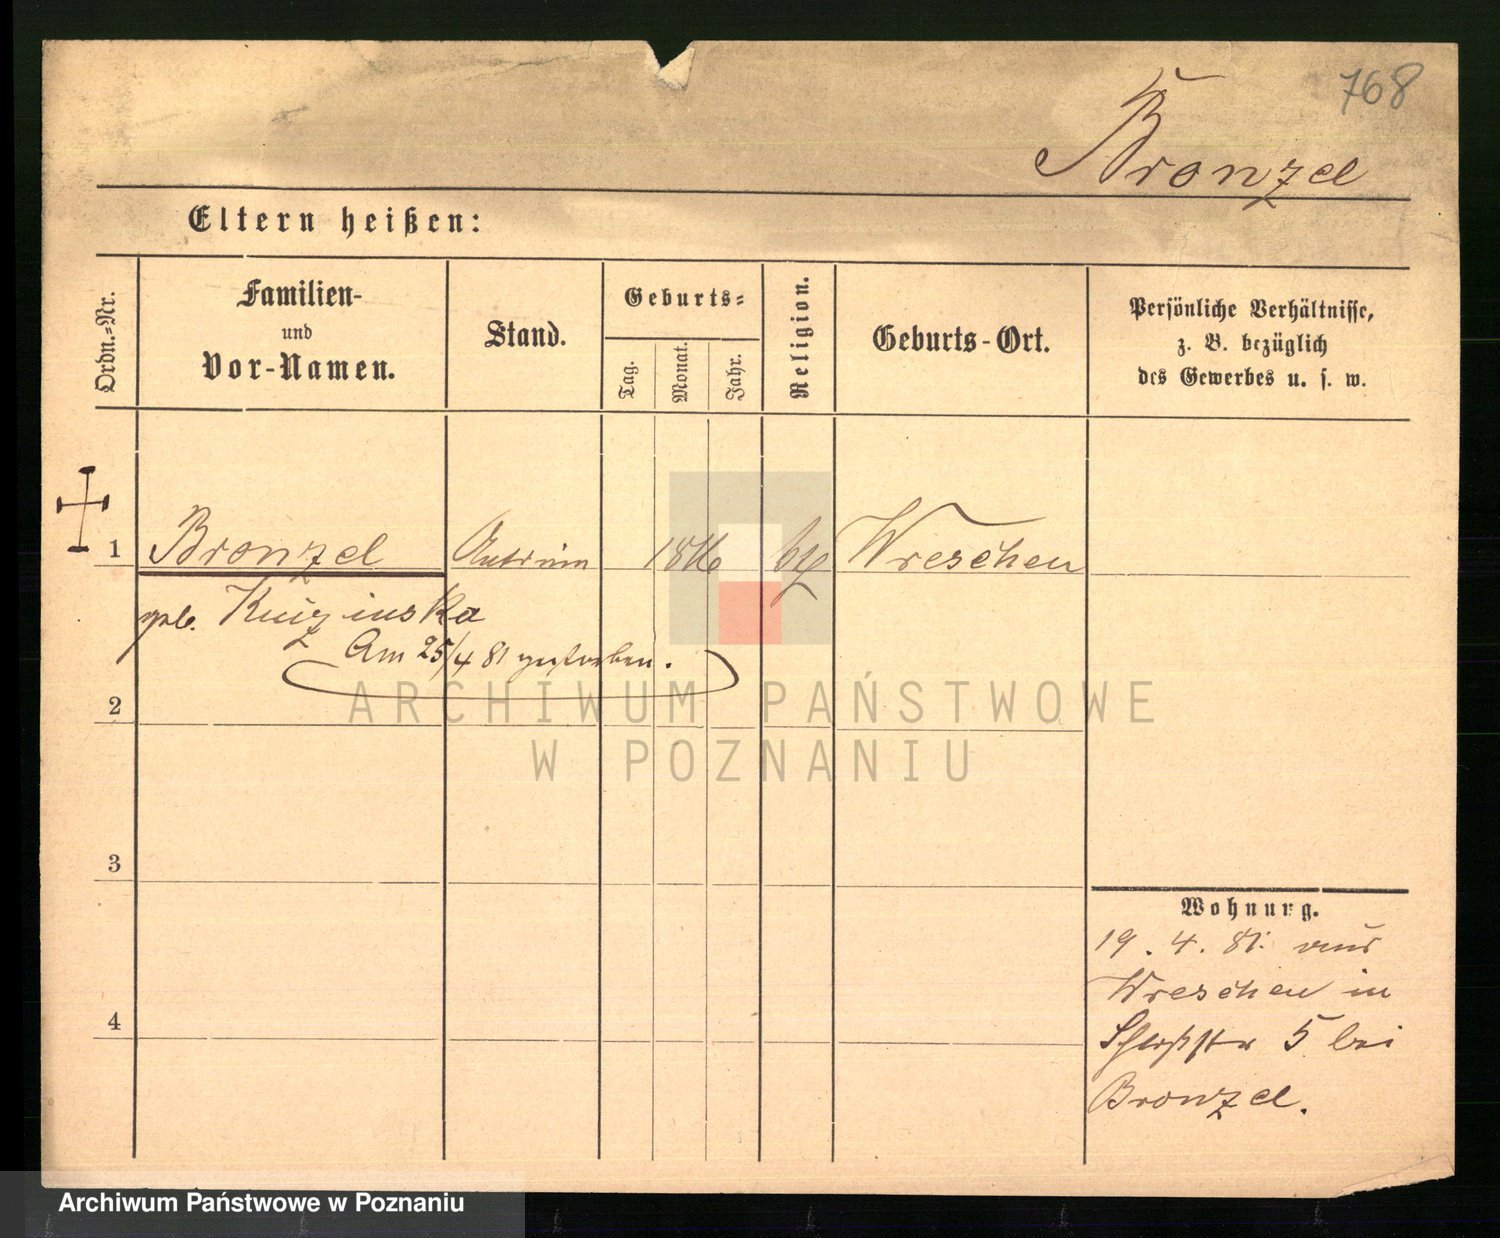 768
Bronzel
Eltern heißen:
Ordn.-Nr.
Familien-
und
Vor-Namen.
Stand.
Geburts-
Tag.
Monat.
Jahr.
Religion.
Geburts-Ort.
Persönliche Verhältnisse,
z. B. bezüglich
des Gewerbes u. s. w.
1 Bronzel 18 Wreschen
geb.
Am 25/4 81 gestorben.
2
3
4
Wohnung.
19. 4. 81. aus
Wreschen in
Schloßstr 5 bei
Bronzel.
ARCHIWUM PAŃSTWOWE
W POZNANIU
Archiwum Państwowe w Poznaniu